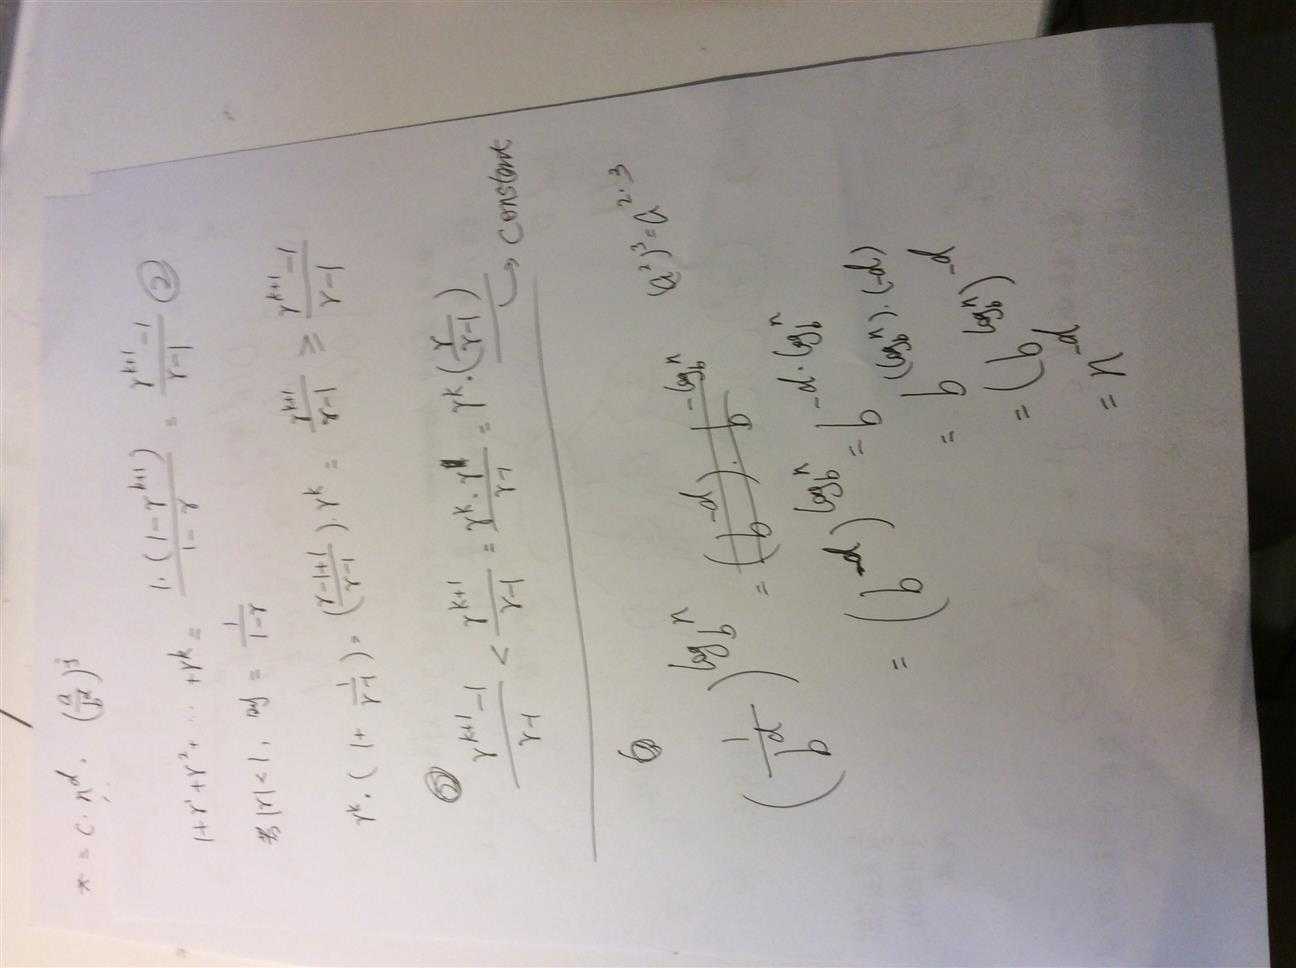 * = c · n^d · (a/b^d)^j
1 + r + r² + ... + r^k = 1·(1 − r^(k+1)) / (1 − r) = (r^(k+1) − 1) / (r − 1) ②
若 |r| < 1, = 1/(1−r)
r^k · (1 + 1/(r−1)) = ((r−1+1)/(r−1)) · r^k = r^(k+1)/(r−1) ≥ (r^(k+1) − 1)/(r−1)
(r^(k+1) − 1)/(r−1) < r^(k+1)/(r−1) = r^k · r/(r−1) = r^k · (r/(r−1))
↳ constant
(a²)³ = a^(2·3)
(1/b^d)^(log_b n) = (b^(−d)) · b^(−log_b n)
= (b^(−d))^(log_b n) = b^(−d · log_b n)
= b^((log_b n)·(−d))
= (b^(log_b n))^(−d)
= n^(−d)